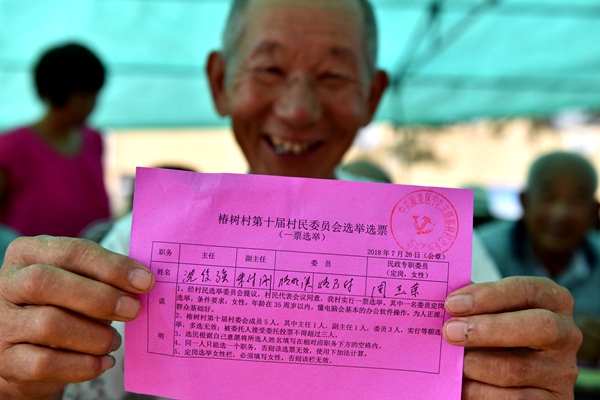 椿树村第十届村民委员会选举选票
(一票选举)
2018年7月26日(公章)
职务 主任 副主任 委员 民政专职委员(定岗、女性)
姓名 沈俊强
说明
1、经村民选举委员会提议,村民代表会议同意,我村实行一票选举。其中一名委员定岗
选举,条件要求:女性,年龄在35周岁以内,懂电脑会基本的办公软件操作,为人正派,
群众基础好。
2、椿树村第十届村委会成员5人,其中主任1人,副主任1人,委员3人,实行等额选
举,多选无效;被委托人接受委托投票不得超过三人。
3、选民根据自己意愿将所选人姓名填写在相对应职务下方的空格内。
4、同一人只能选一个职务,否则该选票无效,使用下加法计算。
5、定岗选举女性栏,必须填写女性,否则该栏无效。